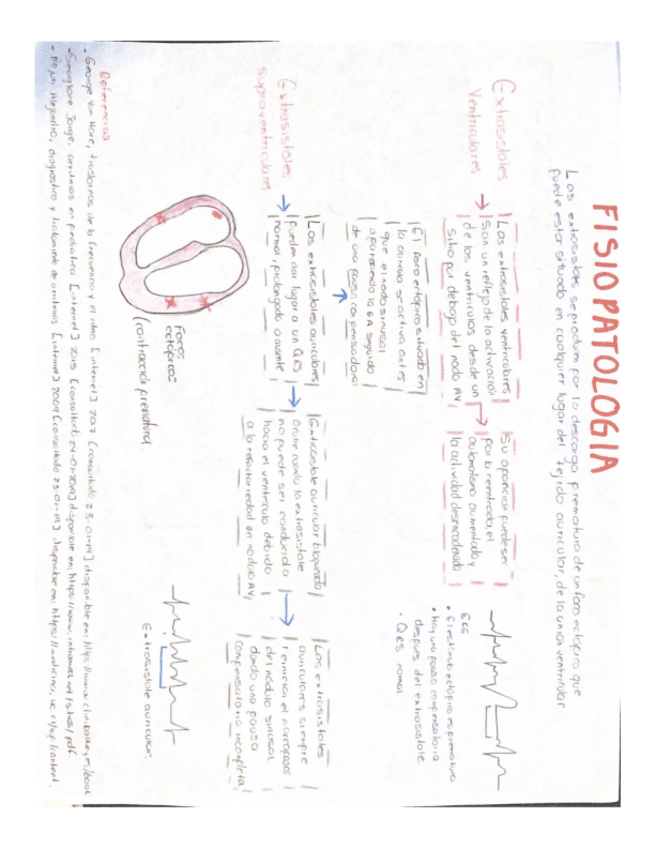 FISIOPATOLOGIA
Las extrasistoles se producen por la descarga prematura de un foco ectópico que
puede estar situado en cualquier lugar del tejido auricular, de la union ventricular
Extrasistoles
Ventriculares
Las extrasistoles ventriculares
Son un reflejo de la activación
de los ventriculos desde un
sitio por debajo del nodo AV
Su aparicion puede ser
por la reentrada, el
automatismo aumentado y
la actividad desencadenada
ECG
• El estimulo ectopico es prematuro
• Hay una pausa compensatoria
despues del extrasistole
• QRS normal
El foco ectópico situado en
la auricula se activa antes
que el nodo sinusal
apareciendo la
seguido
de una pausa compensadora
Extrasistoles
supraventriculares
Las extrasistoles auriculares
pueden dar lugar a un QRS
normal, prolongado o ausente
Extrasistole auricular bloqueada
Ocurre cuando la extrasistole
no puede ser conducida
hacia el ventriculo debido
a la refractariedad en nodulo AV
Las extrasistoles
auriculares siempre
reinician el marcapasos
del nodulo sinusal
dando una pausa
compensatoria incompleta
Focos
ectópicos
(contracción prematura)
Extrasistole auricular
Referencias
• George Van Hare, trastornos de la frecuencia y el ritmo [internet] 2017 [consultado 23-01-19] disponible en: https://www.clinicalkey.es/book
Jorge, arritmias en pediatria [internet] 2015 [consultado 24-01-2019] disponible en: https://www.
Alejandro, diagnostico y tratamiento de arritmias [internet] 2009 [consultado 23-01-19]. disponible en: https://medicina.uc.cl/wp/content.